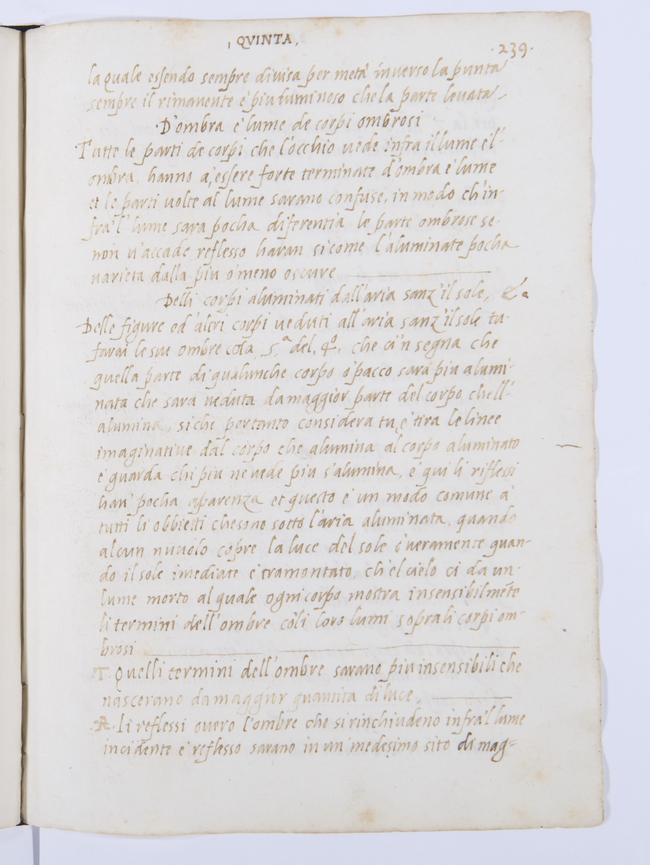 , QVINTA,
.239.
la quale essendo sempre divisa per metà inverso la punta
sempre il rimanente è piu luminoso che la parte levata,
D'ombra e lume de corpi ombrosi
Tutte le parti de corpi che l'occhio vede infra il lume e l'
ombra, hanno a, essere forte terminate d'ombra e lume
et le parti volte al lume sarano confuse, in modo ch'in-
fra'l lume sara pocha diferentia le parte ombrose se-
non v'accade reflesso haran si come l'aluminate pocha
varieta dalla piu o meno oscure
Delli corpi aluminati dall'aria sanz'il sole, &.
Delle figure od'altri corpi veduti all'aria sanz'il sole tu-
farai le sue ombre cola 5ª del .4º. che ci'n segna che
quella parte di qualunche corpo opacco sara piu alumi-
nata che sara veduta da maggior parte del corpo chell'
alumina, siche pertanto considera tu, e tira le linee
imaginative dal corpo che alumina al corpo aluminato
e guarda chi piu ne vede piu s'alumina, e qui li riflessi
han' pocha aparenza et questo e un modo comune à
tutti li obbietti che sono sotto l'aria aluminata, quando
alcun nuvolo copre la luce del sole ò veramente quan-
do il sole imediate è tramontato, ch'el cielo ci da un-
lume morto al quale ogni corpo mostra insensibilmẽte
li termini dell'ombre cõli loro lumi sopra li corpi om-
brosi
T. Quelli termini dell'ombre sarano piu insensibili che
nascerano da maggior quantita di luce,
R. li reflessi overo l'ombre che si rinchiudeno infra'l lume
incidente e reflesso sarano in un medesimo sito di mag-